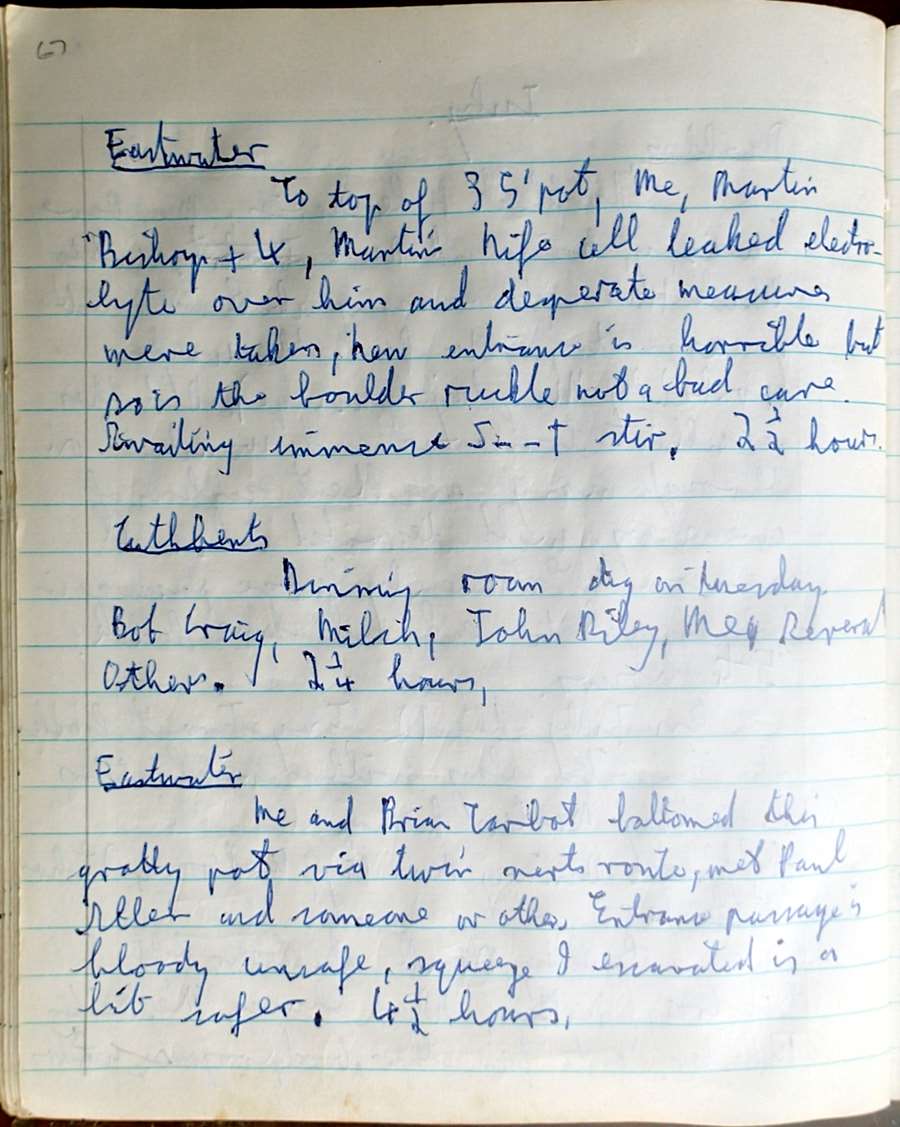 67
Eastwater
To top of 35' pot, Me, Martin
Bishop + 4, Martin's Nife cell leaked electro-
lyte over him and desperate measures
were taken, New entrance is horrible but
so is the boulder ruckle not a bad cave.
Awaiting immense S--t stir. 2½ hours.
Cuthberts
Dining room dig on Tuesday
Bob Craig, Milch, John Riley, Me, Several
Others. 2¼ hours,
Eastwater
Me and Brian bottomed this
grotty pot via twin verts route, met Paul
and someone or other, Entrance passage is
bloody unsafe, squeeze I excavated is a
bit safer. 4½ hours,